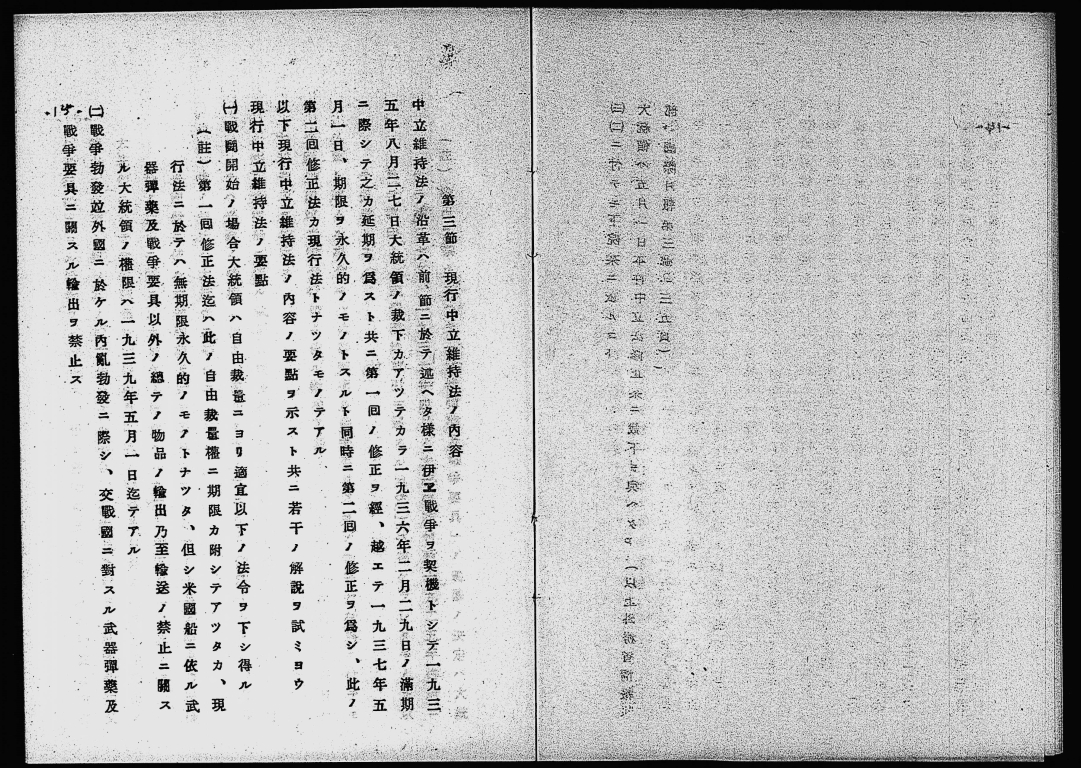 第三節 現行中立維持法ノ內容
中立維持法ノ沿革ハ前節ニ於テ述ヘタ樣ニ伊ヱ戰爭ヲ契機トシテ一九三
五年八月二七日大統領ノ裁下カアツテカラ一九三六年二月二九日ノ滿期
ニ際シテ之カ延期ヲ爲スト共ニ第一回ノ修正ヲ經、越エテ一九三七年五
月一日、期限ヲ永久的ノモノトスルト同時ニ第二回ノ修正ヲ爲シ、此ノ
第二回修正法カ現行法トナツタモノテアル
以下現行中立維持法ノ內容ノ要點ヲ示スト共ニ若干ノ解說ヲ試ミヨウ
現行中立維持法ノ要點
㈠戰鬪開始ノ場合大統領ハ自由裁量ニヨリ適宜以下ノ法令ヲ下シ得ル
(註)第一回修正法迄ハ此ノ自由裁量權ニ期限カ附シテアツタカ、現
行法ニ於テハ無期限永久的ノモノトナツタ、但シ米國船ニ依ル武
器彈藥及戰爭要具以外ノ總テノ物品ノ輸出乃至輸送ノ禁止ニ關ス
ル大統領ノ權限ハ一九三九年五月一日迄テアル
㈡戰爭勃發竝外國ニ於ケル內亂勃發ニ際シ、交戰國ニ對スル武器彈藥及
戰爭要具ニ關スル輸出ヲ禁止ス